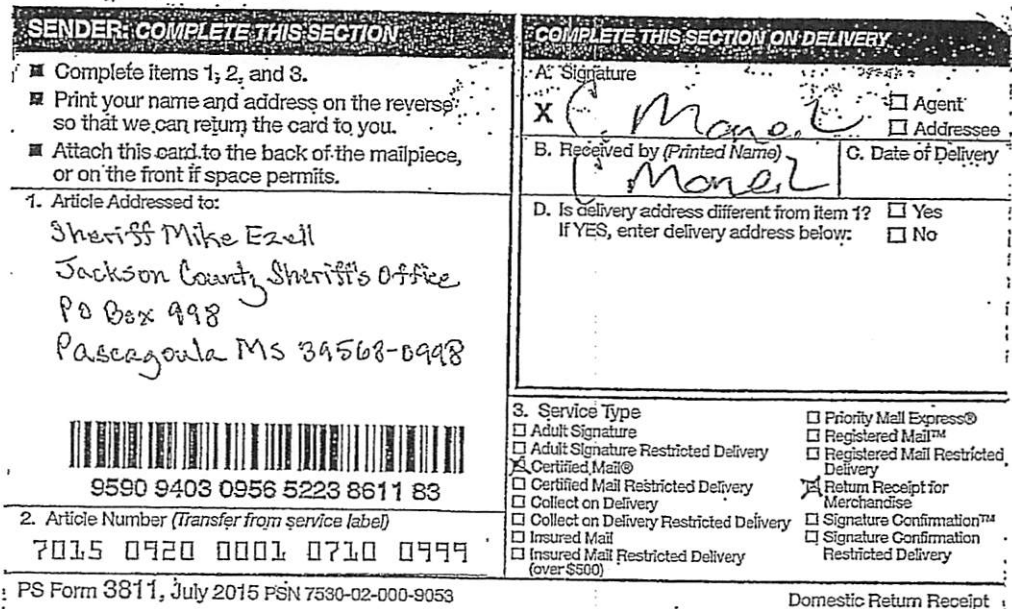 SENDER: COMPLETE THIS SECTION
■ Complete items 1, 2, and 3.
■ Print your name and address on the reverse
so that we can return the card to you.
■ Attach this card to the back of the mailpiece,
or on the front if space permits.
1. Article Addressed to:
Sheriff Mike Ezell
Jackson County Sheriff's Office
PO Box 998
Pascagoula MS 39568-0998
9590 9403 0956 5223 8611 83
2. Article Number (Transfer from service label)
7015 0920 0001 0710 0999
PS Form 3811, July 2015 PSN 7530-02-000-9053
COMPLETE THIS SECTION ON DELIVERY
A. Signature
X
☐ Agent
☐ Addressee
B. Received by (Printed Name)
C. Date of Delivery
D. Is delivery address different from item 1? ☐ Yes
If YES, enter delivery address below: ☐ No
3. Service Type
☐ Adult Signature
☐ Adult Signature Restricted Delivery
☒ Certified Mail®
☐ Certified Mail Restricted Delivery
☐ Collect on Delivery
☐ Collect on Delivery Restricted Delivery
☐ Insured Mail
☐ Insured Mail Restricted Delivery
(over $500)
☐ Priority Mail Express®
☐ Registered Mail™
☐ Registered Mail Restricted
Delivery
☒ Return Receipt for
Merchandise
☐ Signature Confirmation™
☐ Signature Confirmation
Restricted Delivery
Domestic Return Receipt